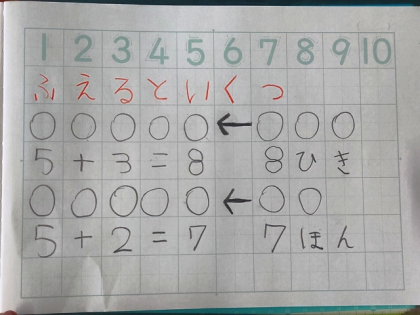 1 2 3 4 5 6 7 8 9 10
ふえるといくつ
○○○○○←○○○
5+3=8 8ひき
○○○○○←○○
5+2=7 7ほん